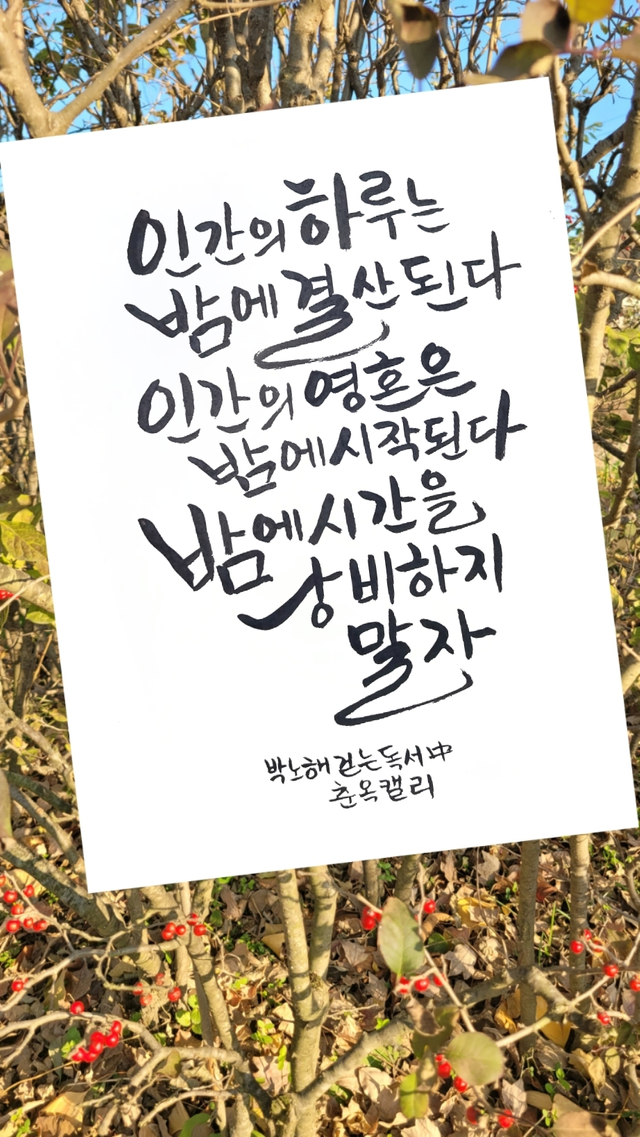 인간의 하루는
밤에 결산 된다
인간의 영혼은
밤에 시작된다
밤에 시간을
낭비하지
말자
박노해 걷는 독서 中
춘옥캘리